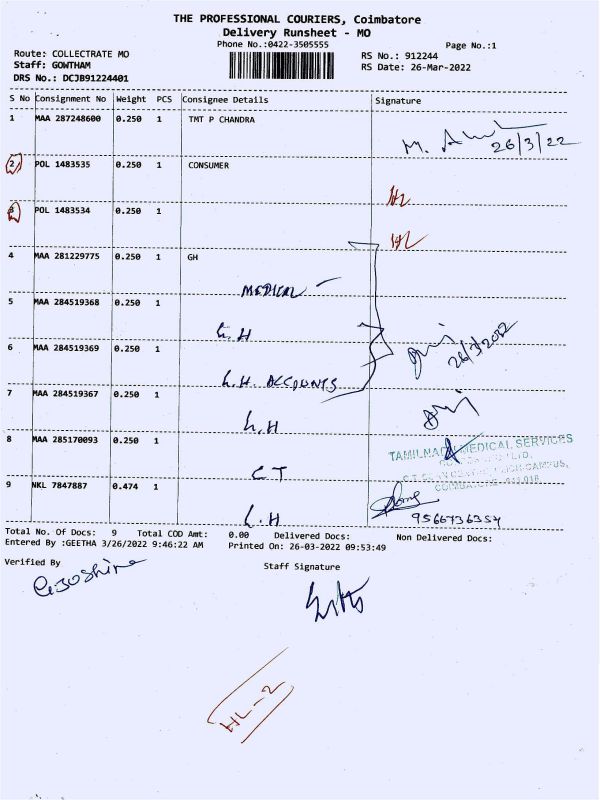 THE PROFESSIONAL COURIERS, Coimbatore
Delivery Runsheet - MO
Phone No.:0422-3505555
Page No.:1
Route: COLLECTRATE MO
Staff: GOWTHAM
DRS No.: DCJB91224401
RS No.: 912244
RS Date: 26-Mar-2022
S No Consignment No Weight PCS Consignee Details Signature
1 MAA 287248600 0.250 1 TMT P CHANDRA
26/3/22
2 POL 1483535 0.250 1 CONSUMER
HL
3 POL 1483534 0.250 1
HL
4 MAA 281229775 0.250 1 GH
MEDICAL
5 MAA 284519368 0.250 1
G.H
6 MAA 284519369 0.250 1 26/3/2022
G.H. ACCOUNTS
7 MAA 284519367 0.250 1
G.H
8 MAA 285170093 0.250 1 TAMILNADU MEDICAL SERVICES
CT
9 NKL 7847887 0.474 1
G.H 9566736354
Total No. Of Docs: 9 Total COD Amt: 0.00 Delivered Docs: Non Delivered Docs:
Entered By :GEETHA 3/26/2022 9:46:22 AM Printed On: 26-03-2022 09:53:49
Verified By Staff Signature
HL-2